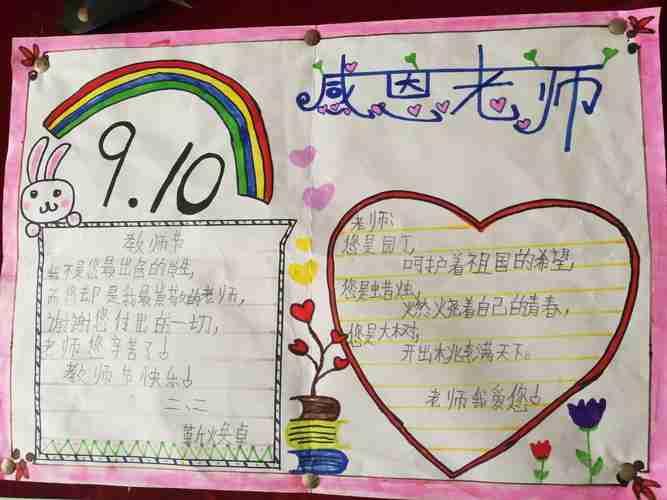 9.10
感恩老师
教师节
我不是您最出色的学生,
而您却是我最崇敬的老师,
谢谢您付出的一切,
老师您辛苦了!
教师节快乐!
二、二
老师:
您是园丁,
呵护着祖国的希望,
您是蜡烛,
燃烧着自己的青春,
您是大树,
开出桃李满天下。
老师我爱您!